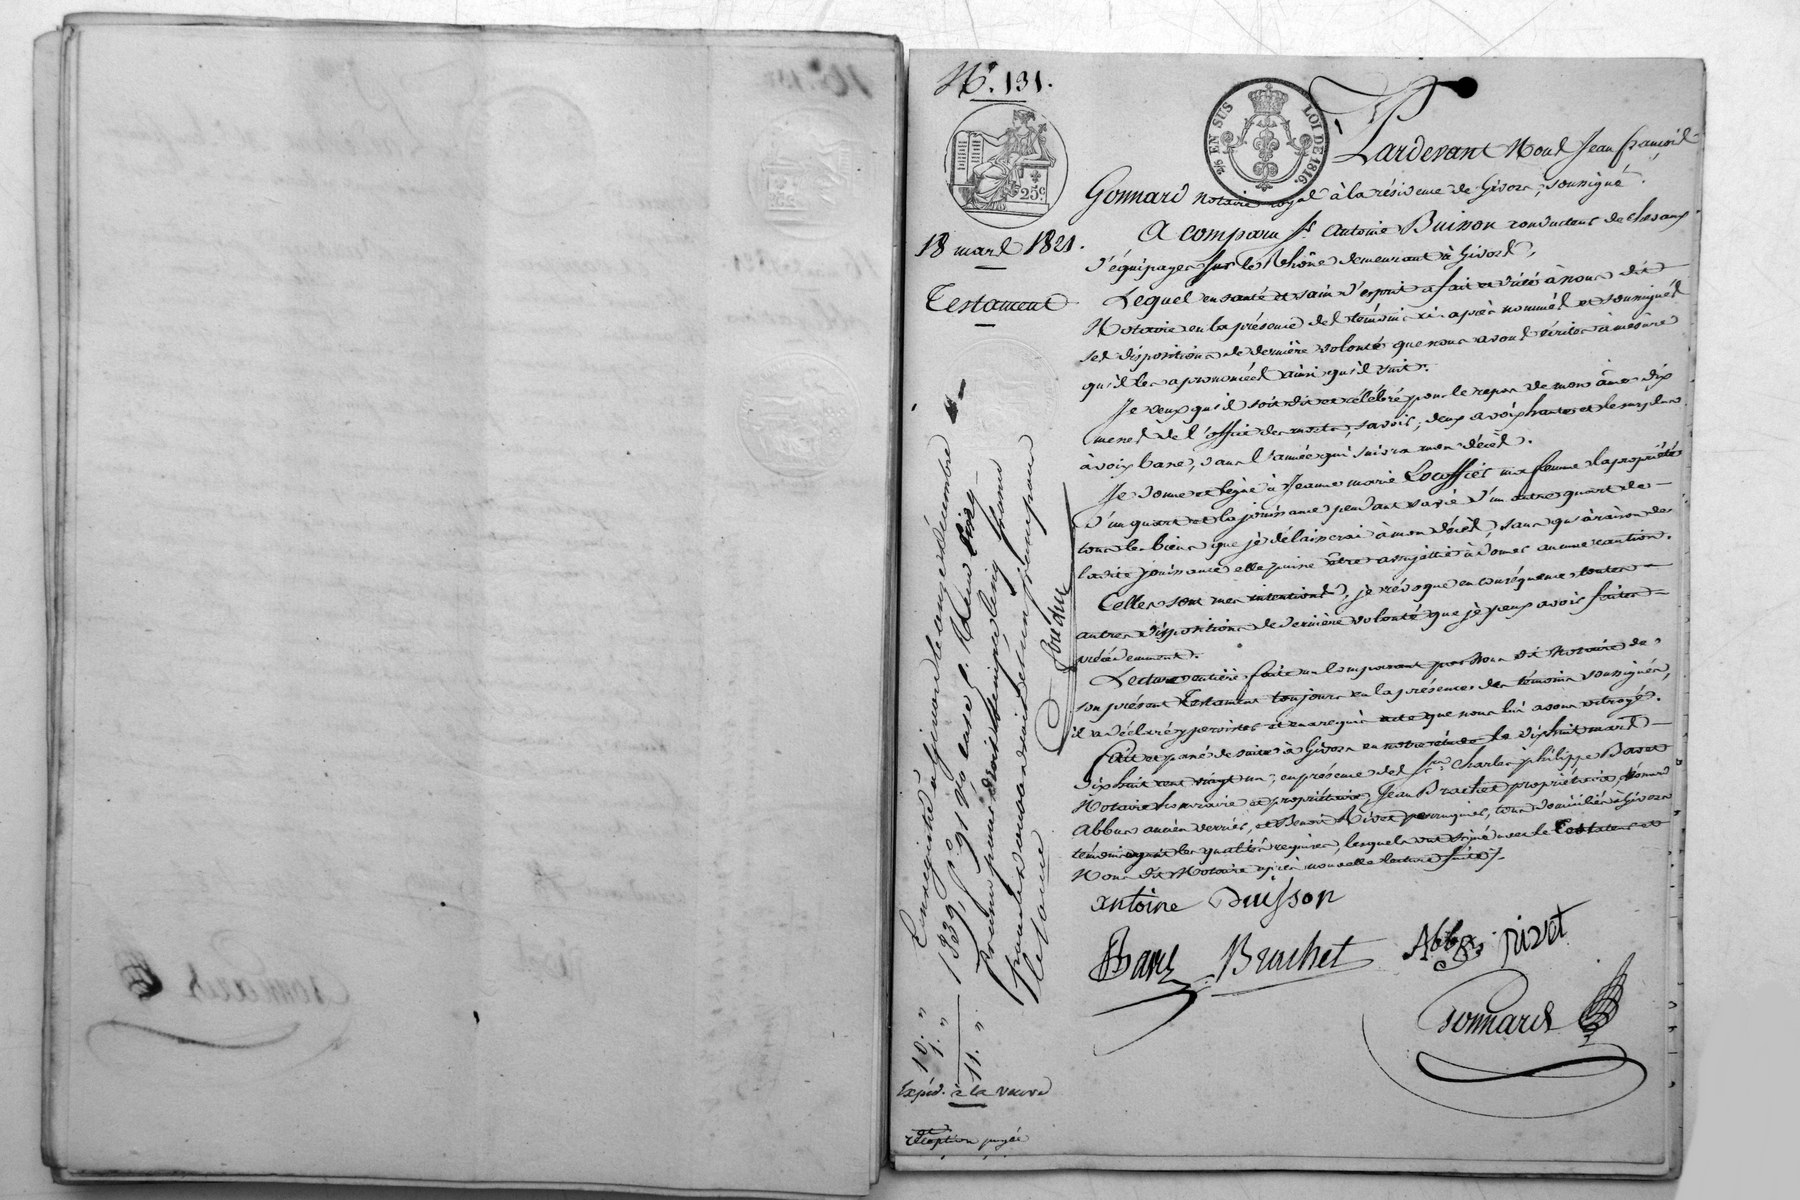 N.° 131.
25 EN SUS LOI DE 1816.
25c.
18 mars 1821.
Testament
Pardevant Nous Jean françois
Gonnard Notaire royal à la résidence de Givors, soussigné.
A comparu sr. Antoine Buisson conducteur de chevaux
d'équipages sur le Rhône demeurant à Givors,
Lequel en santé et sain d'esprit a fait et dicté à nous dit
Notaire en la présence des témoins ci après nommés et soussignés
ses dispositions de dernière volonté que nous avons écrites à mesure
qu'il les a prononcées ainsi qu'il suit.
Je veux qu'il soit dit et célébré pour le repos de mon âme dix
messes de l'office des morts, savoir; deux à voix haute et le surplus
à voix basse, dans l'année qui suivra mon décès.
Je donne et lègue à Jeanne marie ma femme la propriété
d'un quart et la jouissance pendant sa vie d'un autre quart de
tous les biens que je délaisserai à mon décès, sans qu'à raison de
ladite jouissance elle puisse être assujettie à donner aucune caution.
Celles sont mes intentions, je révoque en conséquence toutes
autres dispositions de dernière volonté que je peux avoir faites
précédemment.
Lecture entière faite au comparant par Nous dit Notaire de
son présent Testament toujours en la présence des témoins soussignés,
il a déclaré y persister et en a requis acte que nous lui avons octroyé.
Fait et passé de suite à Givors en notre étude le dix huit mars
dix huit cent vingt un; en présence des srs. Charles philippe
Notaire honoraire et propriétaire, Jean Brachet propriétaire,
Abbus ancien verrier, et Benoit Rivet perruquier, tous domiciliés à Givors
témoins ayant les qualités requises, lesquels ont signé avec le Testateur et
Nous dit Notaire après nouvelle lecture faite.
antoine Buisson
Brachet
rivet
Gonnard
Enregistré à Givors le onze décembre
1839, f° 91 v° case 5. Reçu dix
francs pour droit principal, cinq francs
pour
10. "
1. "
11. "
Expéd. à la veuve
réception payée